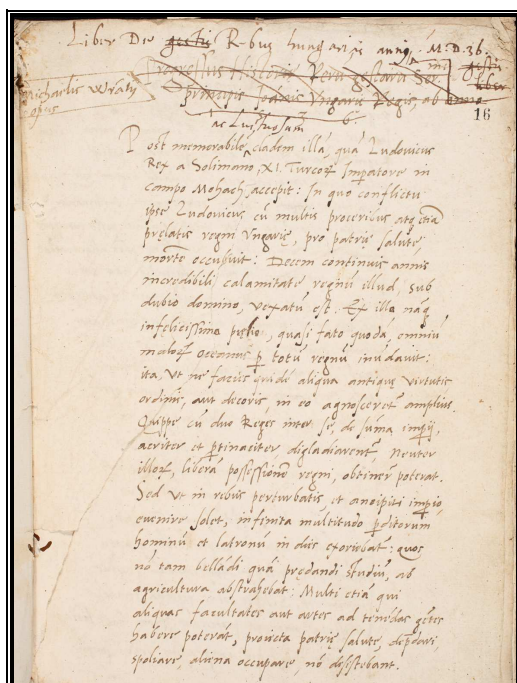 Liber De gestis Rebus hungaricis anni M.D.36.
Progressus Historiæ Rerū gestarū Ser.mi
gestis liber
principis Joannis Vngariæ Regis, ab anno
Michaelis Wrāty
opus
16
ac Luctuosam
6.
Post memorabilē cladem illā, quā Ludovicus
Rex a Solimano, XI. Turcoꝝ Imꝑatore in
campo Mohach accepit: In quo conflictu
ipse Ludovicus cū multis proceribus atqꝫ etiā
prelatis regni Vngarię, pro patrię salute,
mortē occubuit: Decem continuis annis
incredibili calamitate regnū illud, sub
dubio domino, vexatū est. Ex illo naqꝫ
infelicissimo prelio, quasi fato quodā, omniū
maloꝝ oceanus ꝑ totū regnū inūdavit:
ita, vt ne facies quidē aliqua antiquę virtutis
ordinis, aut decoris, in eo agnosceret amplius.
Quippe cū duo Reges inter se, de sūma impij,
acriter et ꝑtinaciter digladiarent, neuter
illoꝝ, liberā possessionē regni, obtinere poterat.
Sed vt in rebus perturbatis et ancipiti impio
evenire solet, infinita multitudo ꝑditorum
hominū et latronū in dies exoriebat: quos
nō tam bellādi quā prędandi studiū, ab
agricultura abstrahebat: Multi etiā qui
aliquas facultates aut artes ad tenēdas gētes
habere poterāt, proiecta patrię salute, dep̄dari,
spoliare, aliena occupare, nō desistebant.